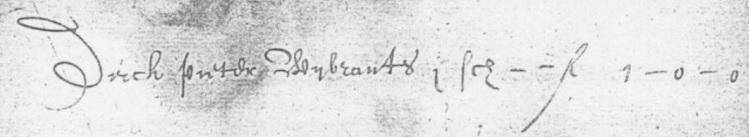 Dirck pieter Wijbrants j sch – – ƒ 1 – 0 – 0